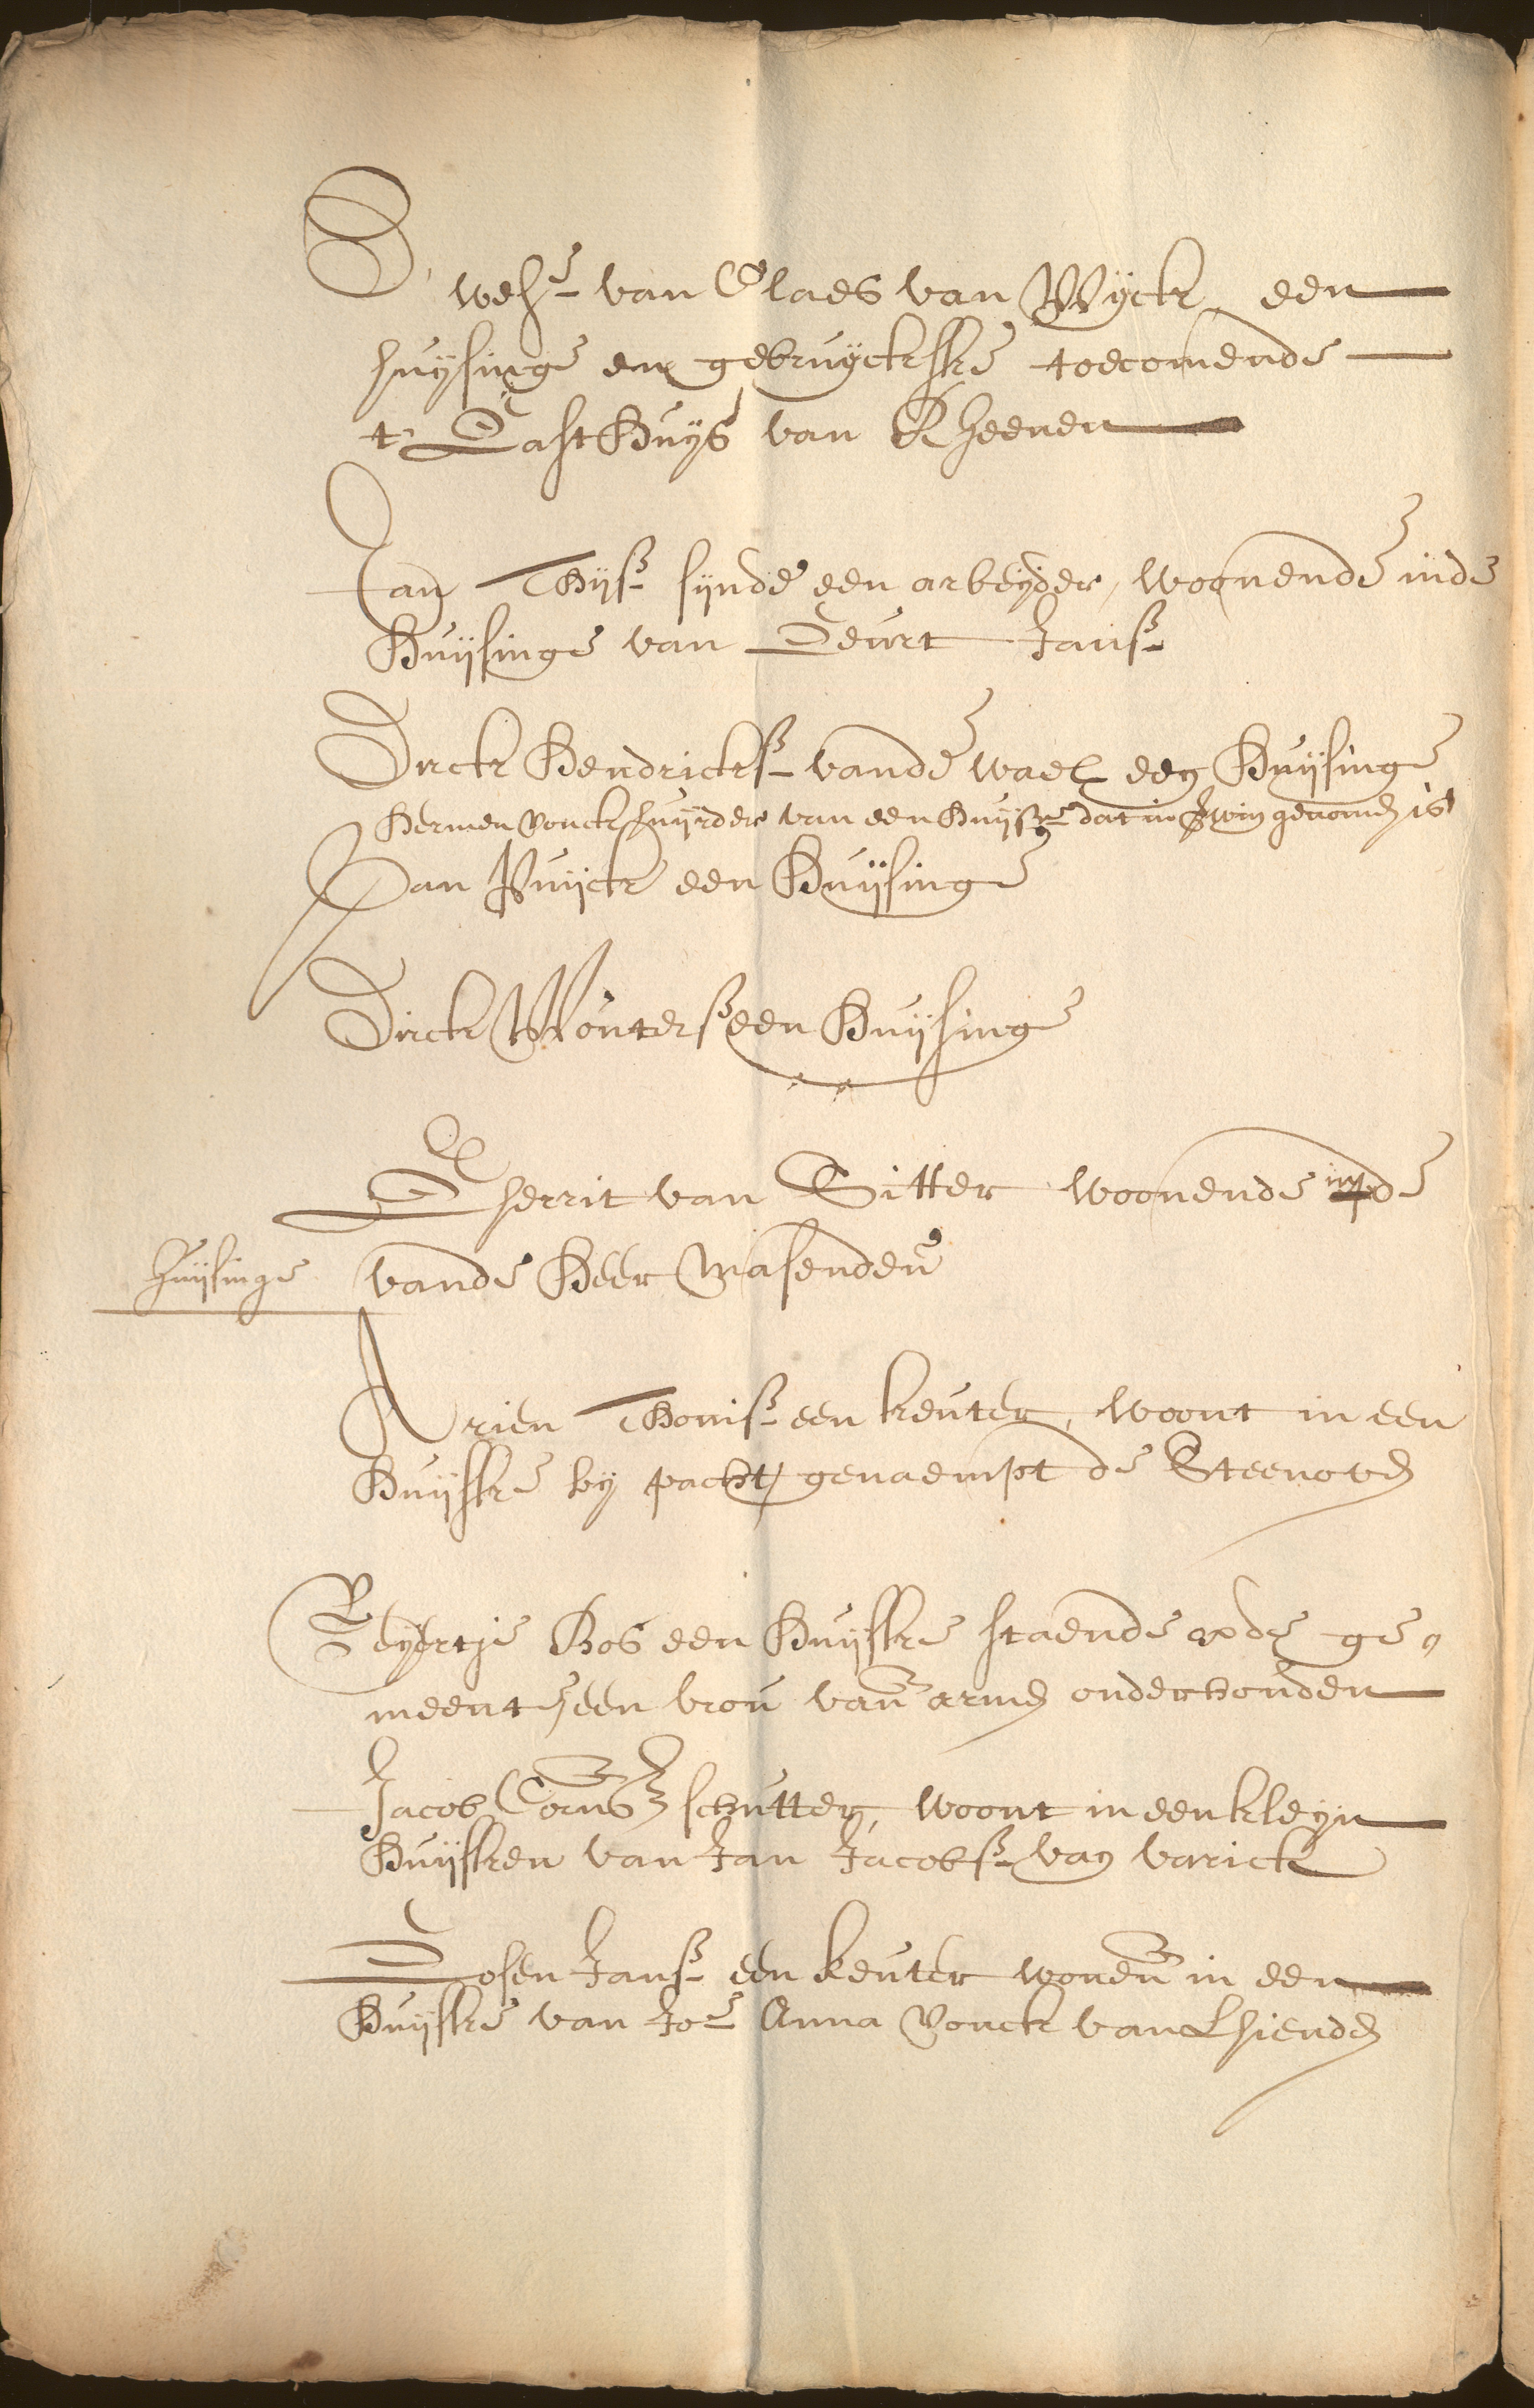 D' wed.e van Claes van Wijck een
huijsinge en gebruijckske toecomende
t' Gasthuijs van Rheenen
Jan Thijss sijnde een arbeijder, woonende inde
Huijsinge van Geurt Janss
Dirck Hendrickss vande wael een Huijsinge
Hermen Vonck huijrder van een huijs dat in genomen is
Jan Buijck een Huijsinge
Dirck Wouterss een Huijsinge
Gherrit van Sitter woonende in de
huijsinge vande Heer Masenden
Arien Thoniss een keuter, woont in een
Huijske by pacht genaempt de Steenoven
Geijertje Bos een Huijske staende op de ge
meente, een vrou van armen onderhouden
Jacob Corns schutter, woont in een kleijn
Huijsken van Jan Jacobss van Varick
Gosen Janss een keuter wonen in een
Huijske van Joe Anna Vonck van Lhienden